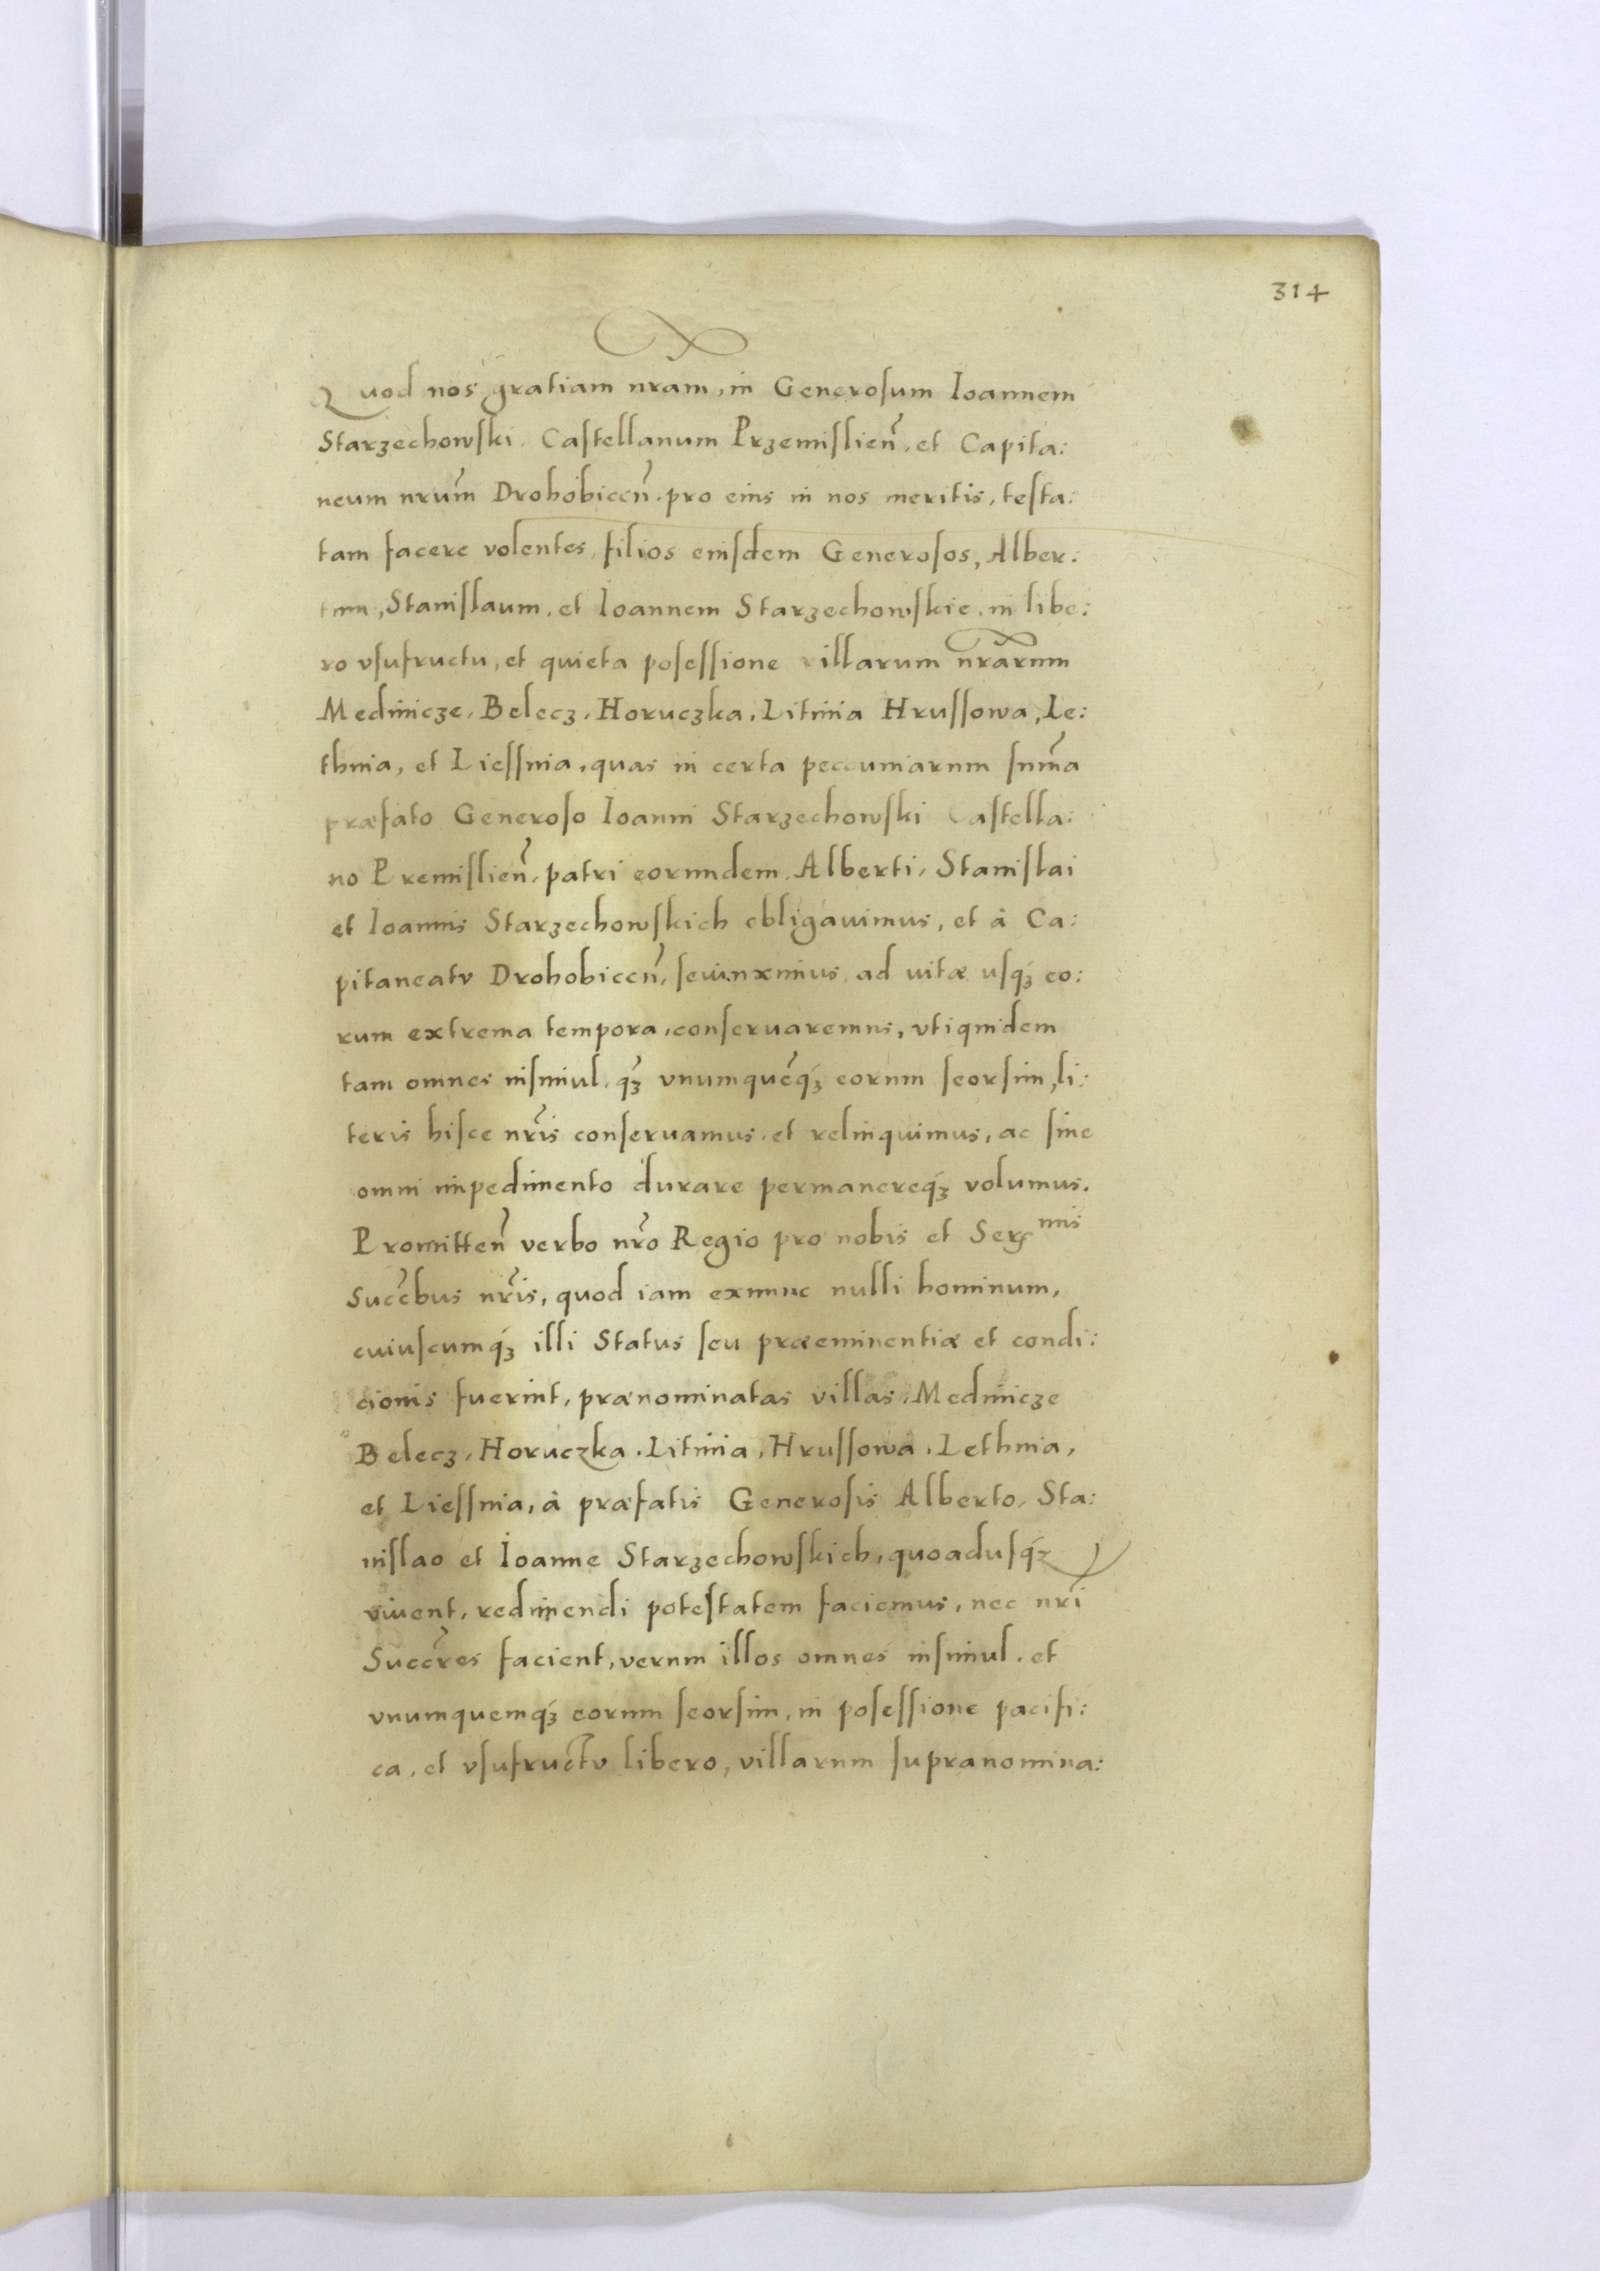 314
Quod nos gratiam nram, in Generosum Ioannem
Starzechowski. Castellanum Przemislien̄, et Capita:
neum nrum̄ Drohobicen̄. pro eius in nos meritis, testa:
tam facere volentes, filios eiusdem Generosos, Alber:
tum, Stanislaum, et Ioannem Starzechowskie, in libe:
ro vsufructu, et quieta posessione villarum nrārum
Mediniczе, Belecz, Horuczka, Litinia Hrussowa, Le:
thnia, et Liessnia, quas in certa peccuniarum sum̄a
præfato Generoso Ioanni Starzechowski Castella:
no Premislien̄, patri eorundem Alberti, Stanislai
et Ioannis Starzechowskich obligauimus, et à Ca:
pitaneatv Drohobicen̄, seiunximus, ad uitæ usq́ꝫ eo:
rum extrema tempora, conseruaremus, vtiquidem
tam omnes insimul, q̄ꝫ vnumquēq́ꝫ eorum seorsim, li:
teris hisce nr̄is conseruamus, et relinquimus, ac sine
omni impedimento durare permanereq́ꝫ volumus.
Promitten̄ verbo nr̄o Regio pro nobis et Serᵐⁱˢ
Succ̄bus nr̄is, quod iam exnunc nulli hominum,
cuiuscumq́ꝫ illi Status seu præeminentiæ et condi:
cionis fuerint, prænominatas villas, Medinicze
Belecz, Horuczka, Litinia, Hrussowa, Lethnia,
et Liessnia, à præfatis Generosis Alberto, Sta:
nislao et Ioanne Starzechowskich, quoadusq́ꝫ
viuent, redimendi potestatem faciemus, nec nr̄i
Succr̄es facient, verum illos omnes insimul, et
vnumquemq́ꝫ eorum seorsim, in posessione pacifi:
ca, et vsufructv libero, villarum supranomina: